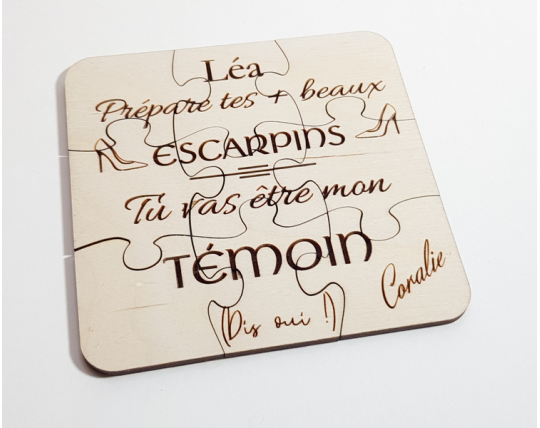 Léa
Prépare tes + beaux
ESCARPINS
Tu vas être mon
TÉMOIN
(Dis oui !)
Coralie